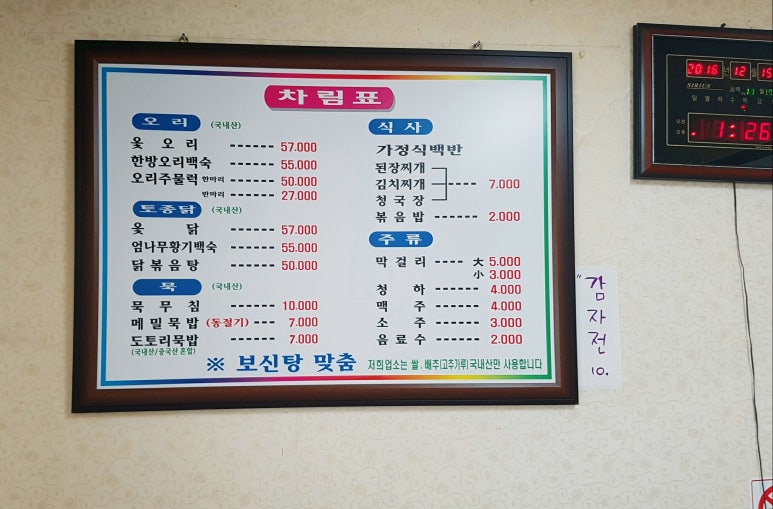 차림표
오리 (국내산)
옻 오리 ------ 57.000
한방오리백숙 ------ 55.000
오리주물럭 한마리 ------ 50.000
반마리 ------ 27.000
토종닭 (국내산)
옻 닭 ------ 57.000
엄나무황기백숙 ------ 55.000
닭볶음탕 ------ 50.000
묵 (국내산)
묵무침 ------ 10.000
메밀묵밥 (동절기) --- 7.000
도토리묵밥 ------ 7.000
(국내산/중국산 혼합)
식사
가정식백반
된장찌개
김치찌개 ---- 7.000
청국장
볶음밥 ------ 2.000
주류
막걸리 ---- 大 5.000
小 3.000
청하 ------ 4.000
맥주 ------ 4.000
소주 ------ 3.000
음료수 ------ 2.000
※ 보신탕 맞춤
저희업소는 쌀.배추(고추가루)국내산만 사용합니다
"감자전
10.
2016 년 12 월 15
SIRIUS 음력 11 월 17
일 월 화 수 목 금
오전
오후
1:26